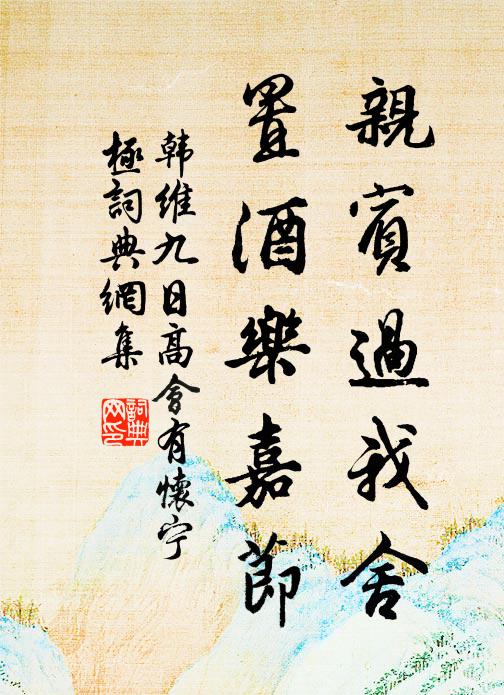 親賓過我舍
置酒樂嘉節
韩維九日高會有懷宁
極詞典網集
詞典
网印